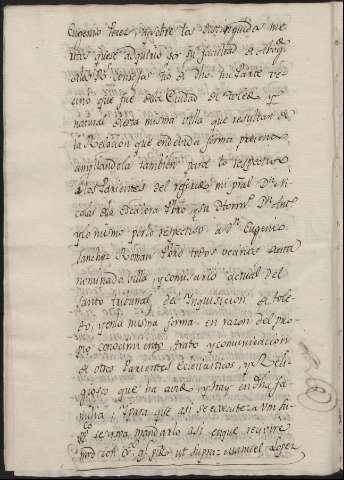 Eugenio Perez, y sobre las distinguidas me
ritos que se adquirió por su facultad de Abog
de los R.s Consejos tio de dho mi Parte ve
cino que fue dela Ciudad de Toledo y
natural desta misma villa que resultan de
la Relacion que en devida forma presento
ampliandola tambien para lo respectivo
a los Parientes del referido mi pñal Dn Ni
colas dela Escalera Pbro y su Herno Dn Ant
y lo mismo por lo respectivo a Dn Eugenio
Sanchez Roman Pbro todos vecinos de esta
nominada villa y comisario actual del
Santo Tribunal del Inquisicion de Tole
do, y en la misma forma en razon del pro
pio conocimiento, trato y comunicacion
de otros Parientes Eclesiasticos, y Reli
giosos que ha avido y hay en dha fa
milia; y para que asi se execute a Vm su
plico se sirva mandarlo asi en que recivire
mrd con Justa. pido ut supra Manuel Lopez